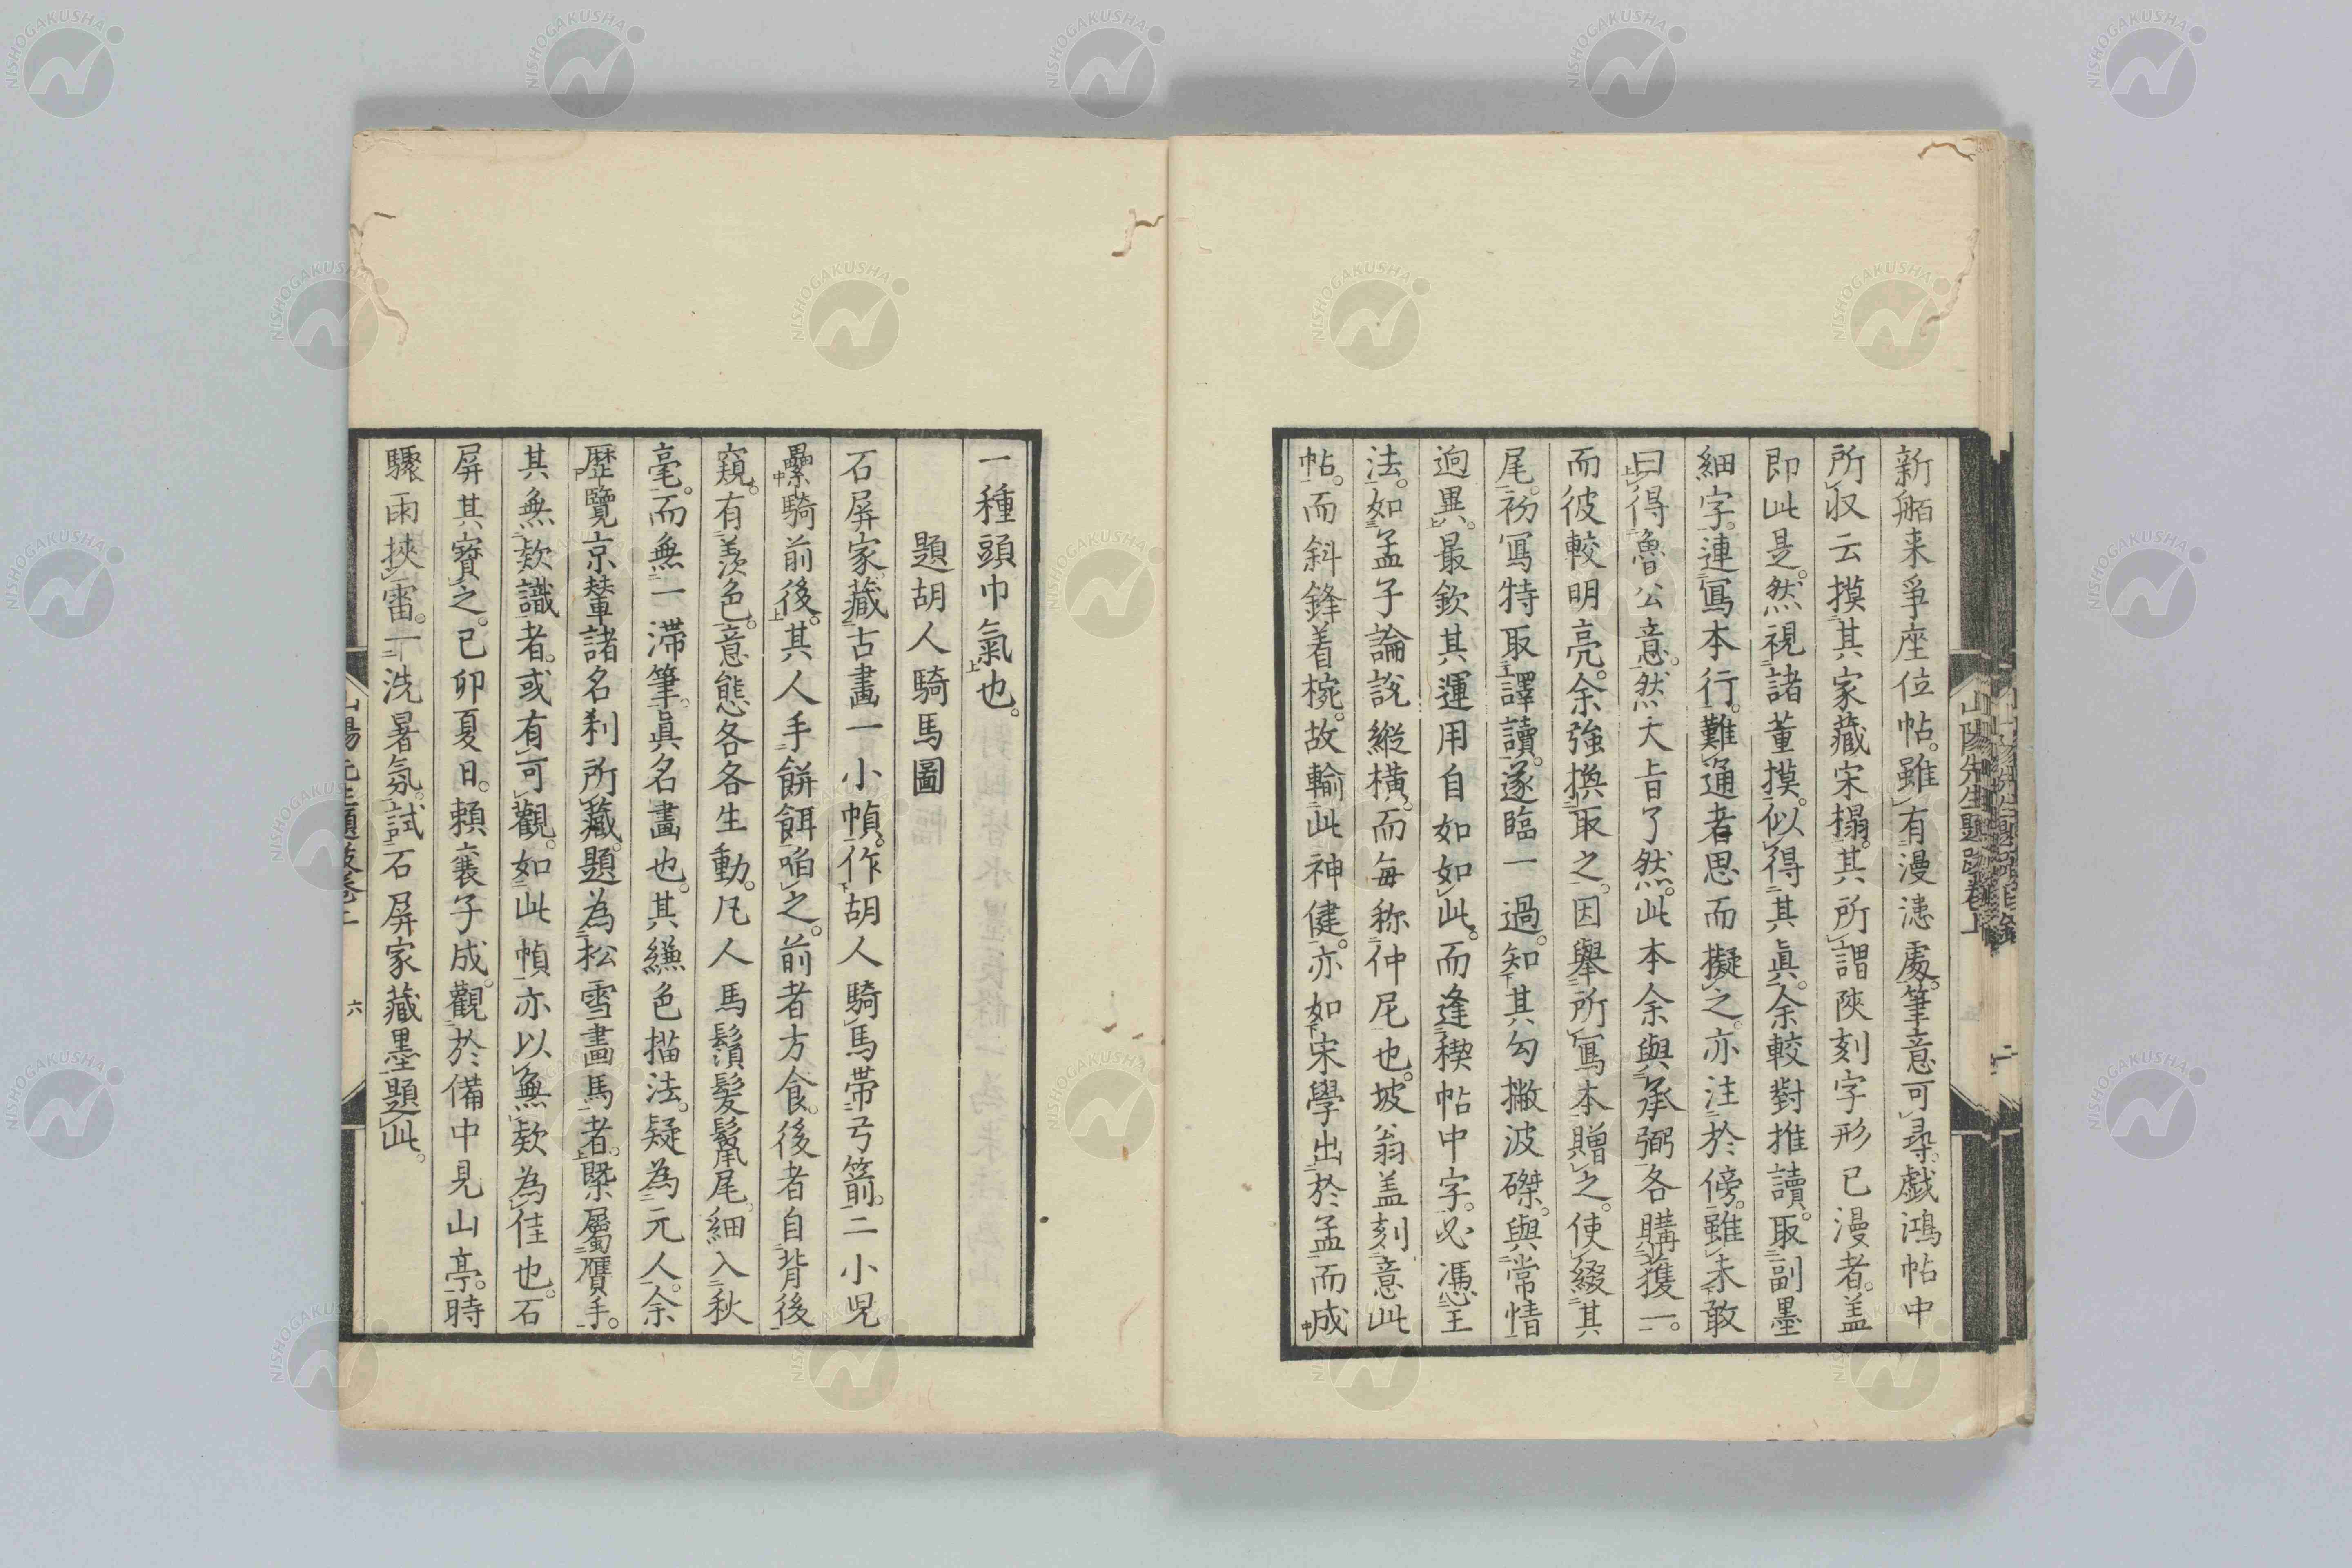 新舶来爭座位帖。雖有漫漶處。筆意可尋。戲鴻帖中
所収云摸其家藏宋搨。其所謂陝刻字形已漫者。盖
即此是。然視諸董摸。似得其眞。余較對推讀。取副墨
細字。連寫本行。難通者思而擬之。亦注於傍。雖未敢
曰得魯公意。然大旨了然。此本余與承弼各購獲一。
而彼較明亮。余強換取之。因舉所寫本贈之。使綴其
尾。初寫特取譯讀。遂臨一過。知其勾撇波磔。與常情
逈異。最欽其運用自如如此。而逢稧帖中字。必憑王
法。如孟子論説縱横。而毎称仲尼也。坡翁盖刻意此
帖。而斜鋒着椀。故輸此神健。亦如宋學出於孟而成
一種頭巾氣也。
題胡人騎馬圖
石屏家藏古畫一小幀。作胡人騎馬帯弓箭。二小児
纍騎前後。其人手餅餌啗之。前者方食。後者自背後
窺。有羡色。意態各各生動。凡人馬鬚髮鬉尾。細入秋
毫。而無一滞筆。眞名畫也。其縑色描法。疑為元人。余
歴覽京輦諸名刹所藏。題為松雪畫馬者。槩屬贋手。
其無欵識者。或有可觀。如此幀亦以無欵為佳也。石
屏其寳之。己卯夏日。頼襄子成。觀於備中見山亭。時
驟雨挾雷。一洗暑氛。試石屏家藏墨題此。
山陽先生題跋卷上
六
NISHOGAKUSHA